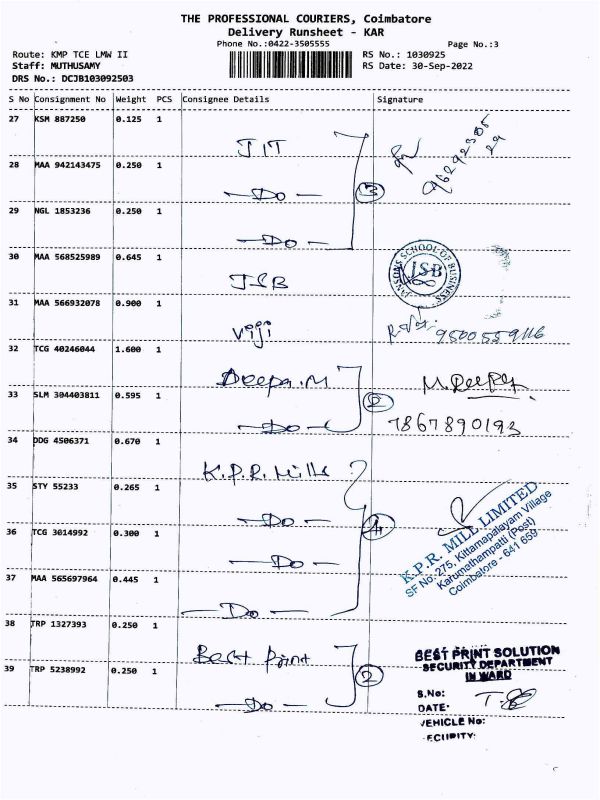 THE PROFESSIONAL COURIERS, Coimbatore
Delivery Runsheet - KAR
Phone No.:0422-3505555
Page No.:3
Route: KMP TCE LMW II
RS No.: 1030925
Staff: MUTHUSAMY
RS Date: 30-Sep-2022
DRS No.: DCJB103092503
S No Consignment No Weight PCS Consignee Details Signature
27 KSM 887250 0.125 1
JIT
9629238529
28 MAA 942143475 0.250 1
-Do-
3
29 NGL 1853236 0.250 1
-Do-
30 MAA 568525989 0.645 1
JSB
JANSONS SCHOOL OF BUSINESS
JSB
31 MAA 566932078 0.900 1
Viji
9500559116
32 TCG 40246044 1.600 1
Deepa.M
M.Deepa
33 SLM 304403811 0.595 1
2
-Do-
7867890193
34 DDG 4506371 0.670 1
K.P.R. Mills
35 STY 55233 0.265 1
-Do-
4
K.P.R. MILL LIMITED
SF No: 275, Kittampalayam Village
Karumathampatti (Post)
Coimbatore - 641 659
36 TCG 3014992 0.300 1
-Do-
37 MAA 565697964 0.445 1
-Do-
38 TRP 1327393 0.250 1
Best Print
BEST PRINT SOLUTION
SECURITY DEPARTMENT
IN WARD
39 TRP 5238992 0.250 1
2
-Do-
S.No:
DATE:
VEHICLE No: